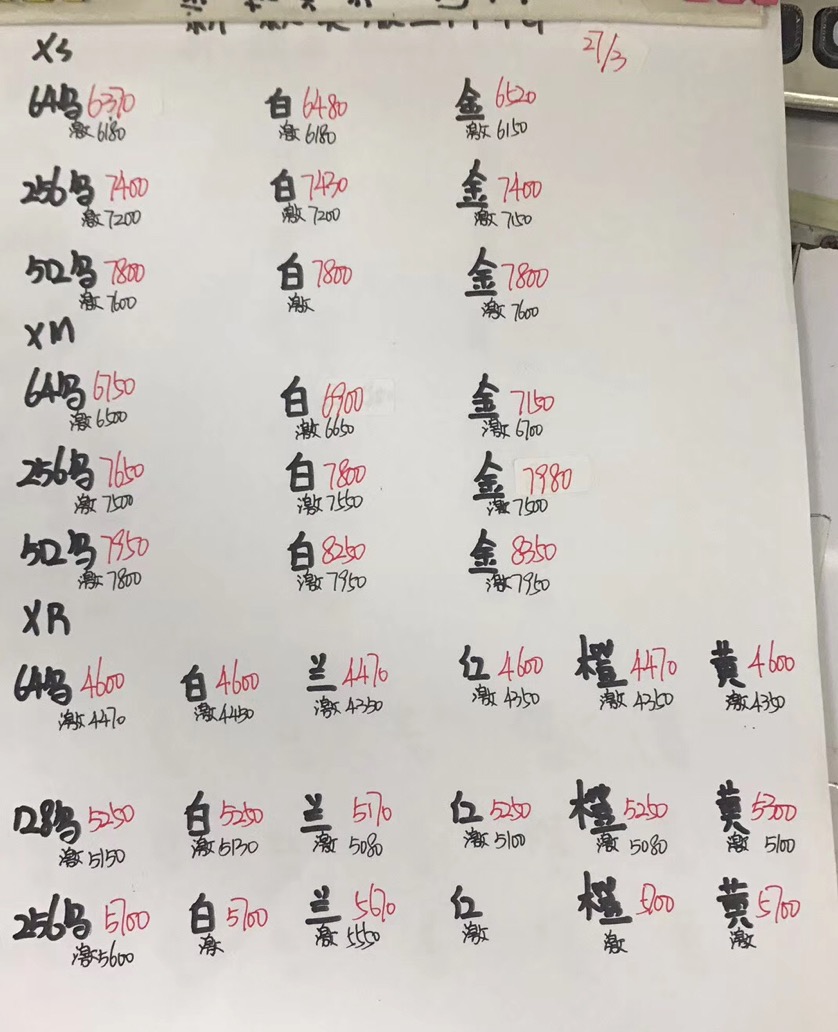 XS 27/3
64乌 6370 白 6480 金 6520
激 6180 激 6180 激 6150
256乌 7400 白 7430 金 7400
激 7200 激 7200 激 7150
512乌 7800 白 7800 金 7800
激 7600 激 激 7600
XM
64乌 6750 白 6900 金 7150
激 6500 激 6650 激 6700
256乌 7650 白 7800 金 7980
激 7500 激 7550 激 7500
512乌 7950 白 8250 金 8350
激 7800 激 7950 激 7950
XR
64乌 4600 白 4600 兰 4470 红 4600 橙 4470 黄 4600
激 4470 激 4450 激 4350 激 4350 激 4350 激 4350
128乌 5250 白 5250 兰 5170 红 5250 橙 5250 黄 5300
激 5150 激 5130 激 5080 激 5100 激 5080 激 5100
256乌 5700 白 5700 兰 5670 红 橙 5700 黄 5700
激 5600 激 激 5550 激 激 激